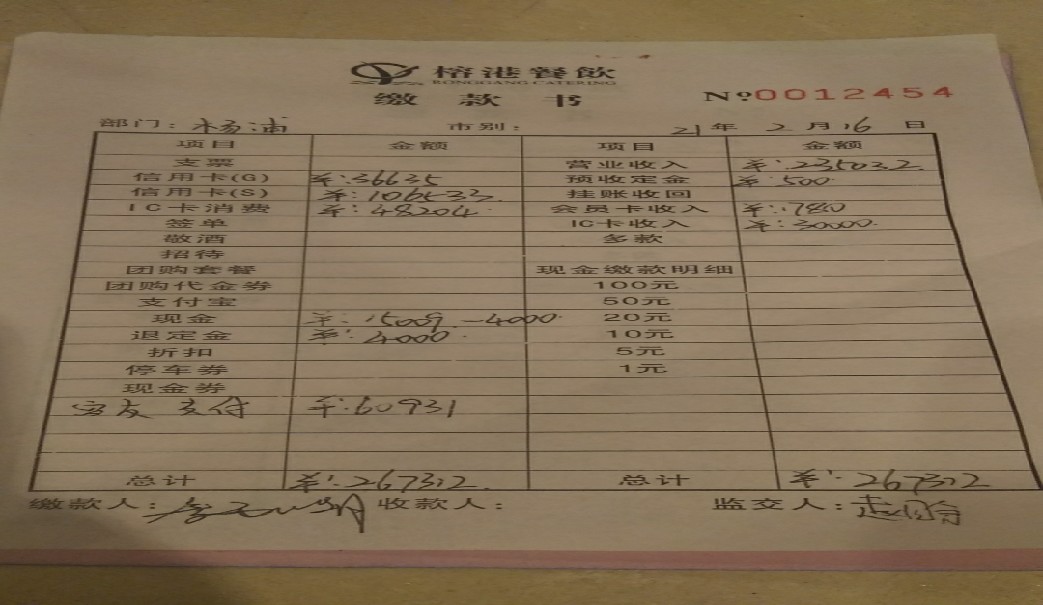 榕港餐飲
RONGGANG CATERING
缴款书
№0012454
部门：杨浦 市别： 21年2月16日
项目 金额 项目 金额
支票 营业收入 ¥:235032
信用卡(G) ¥:36635 预收定金 ¥:500
信用卡(S) ¥:106533 挂账收回
IC卡消费 ¥:48204 会员卡收入 ¥:1780
签单 IC卡收入 ¥:30000
敬酒 多款
招待
团购套餐 现金缴款明细
团购代金券 100元
支付宝 50元
现金 ¥:15009 -4000 20元
退定金 ¥:4000 10元
折扣 5元
停车券 1元
现金券
支付 ¥:60931
总计 ¥:267312 总计 ¥:267312
缴款人： 收款人： 监交人：